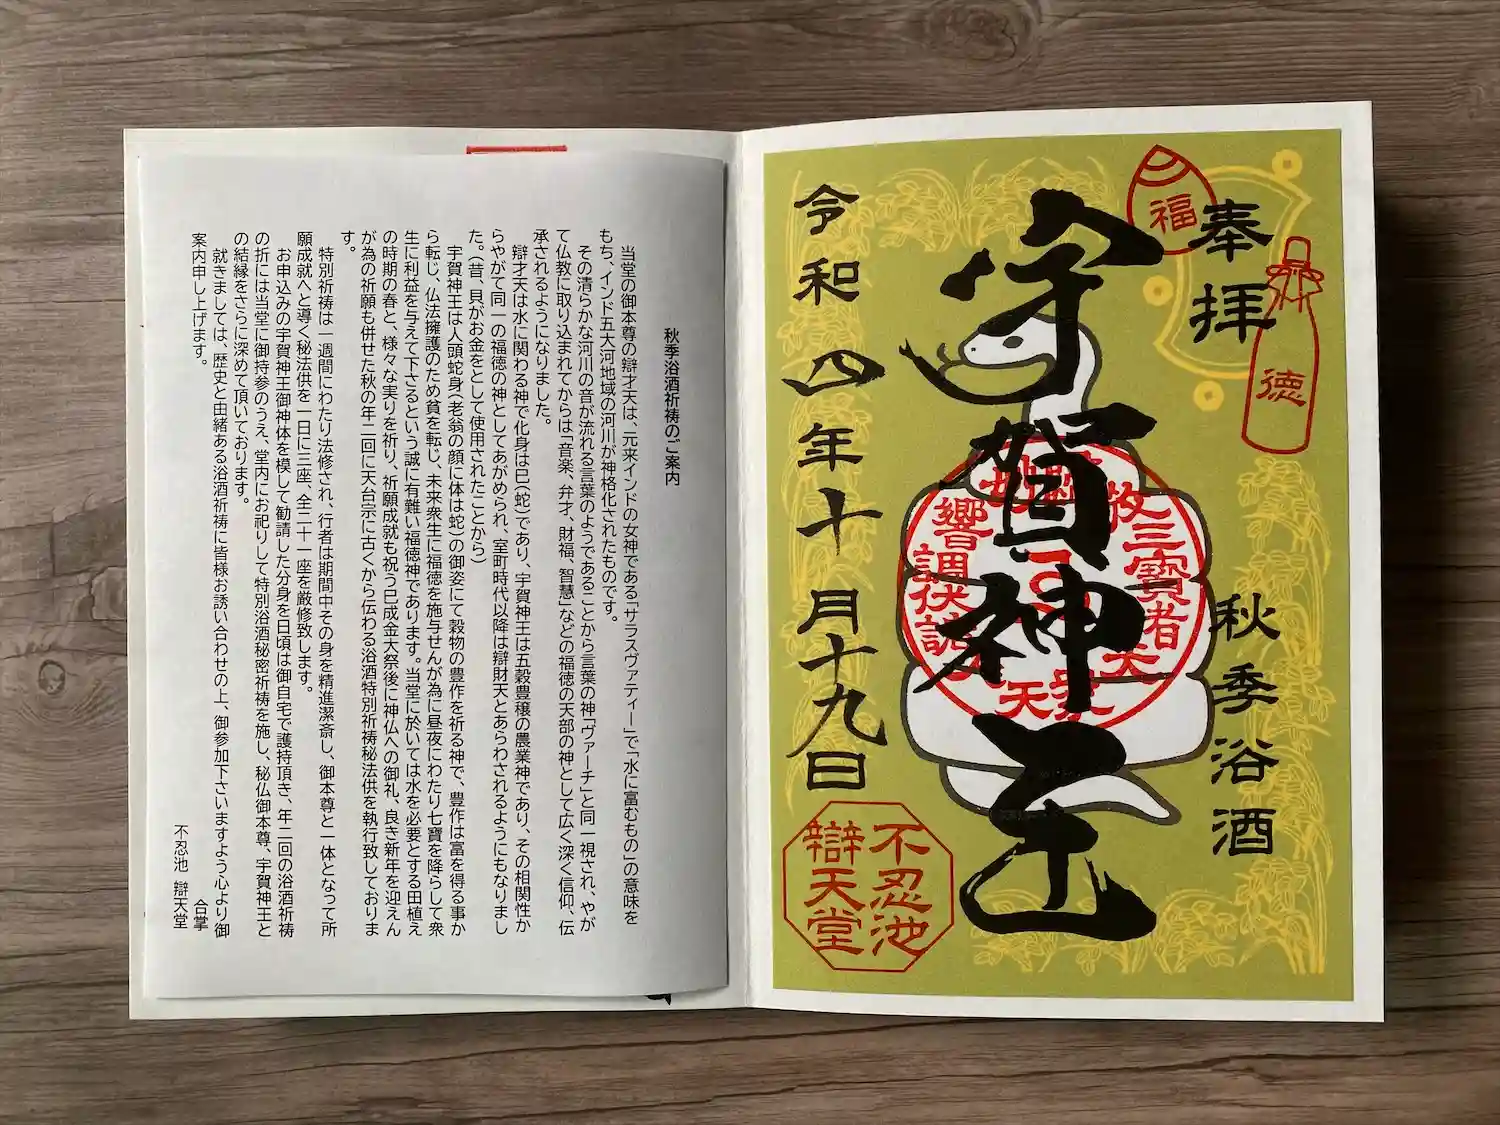 奉拝
福
徳
秋季浴酒
宇賀神王
牧三寶者
響調伏諸
天
令和四年十月十九日
不忍池
辯天堂
秋季浴酒祈祷のご案内
当堂の御本尊の辯才天は、元来インドの女神である「サラスヴァティー」で「水に富むもの」の意味を
もち、インド五大河地域の河川が神格化されたものです。
その清らかな河川の音が流れる言葉のようであることから言葉の神「ヴァーチ」と同一視され、やが
て仏教に取り込まれてからは「音楽、弁才、財福、智慧」などの福徳の天部の神として広く深く信仰、伝
承されるようになりました。
辯才天は水に関わる神で化身は巳(蛇)であり、宇賀神王は五穀豊穣の農業神であり、その相関性か
らやがて同一の福徳の神としてあがめられ、室町時代以降は辯財天とあらわされるようにもなりまし
た。(昔、貝がお金をとして使用されたことから)
宇賀神王は人頭蛇身(老翁の顔に体は蛇)の御姿にて穀物の豊作を祈る神で、豊作は富を得る事か
ら転じ、仏法擁護のため貧を転じ、未来衆生に福徳を施与せんが為に昼夜にわたり七寶を降らして衆
生に利益を与えて下さるという誠に有難い福徳神であります。当堂に於いては水を必要とする田植え
の時期の春と、様々な実りを祈り、祈願成就も祝う巳成金大祭後に神仏への御礼、良き新年を迎えん
が為の祈願も併せた秋の年二回に天台宗に古くから伝わる浴酒特別祈祷秘法供を執行致しておりま
す。
特別祈祷は一週間にわたり法修され、行者は期間中その身を精進潔斎し、御本尊と一体となって所
願成就へと導く秘法供を一日に三座、全二十一座を厳修致します。
お申込みの宇賀神王御神体を模して勧請した分身を日頃は御自宅で護持頂き、年二回の浴酒祈祷
の折には当堂に御持参のうえ、堂内にお祀りして特別浴酒秘密祈祷を施し、秘仏御本尊、宇賀神王と
の結縁をさらに深めて頂いております。
就きましては、歴史と由緒ある浴酒祈祷に皆様お誘い合わせの上、御参加下さいますよう心より御
案内申し上げます。
合掌
不忍池 辯天堂